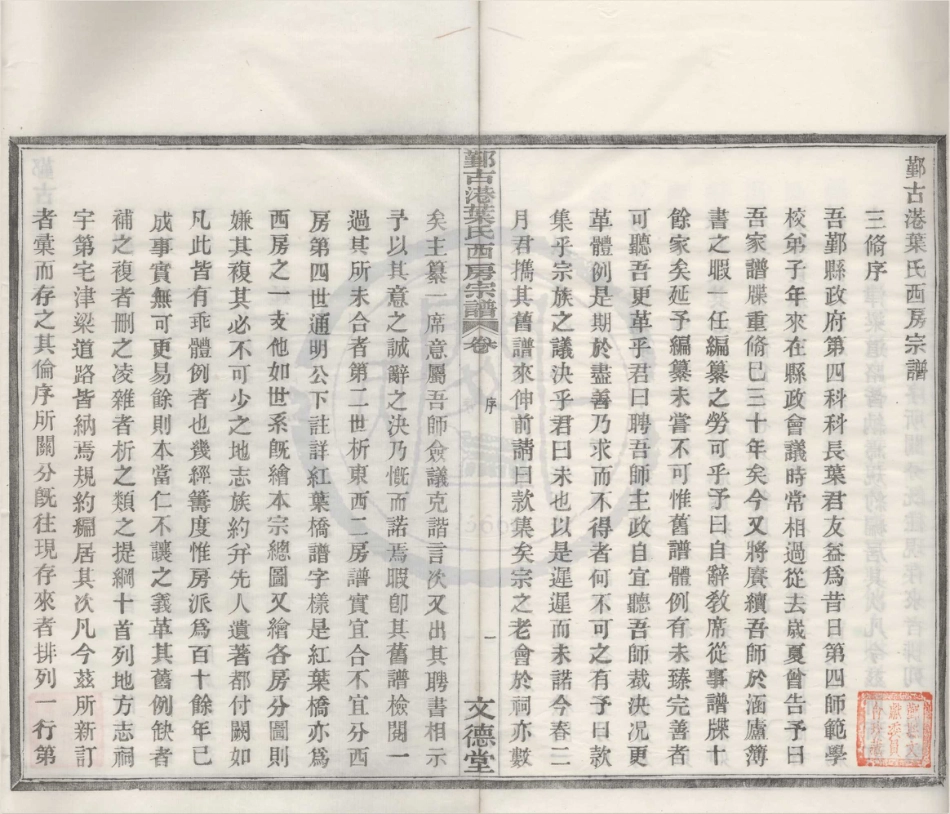 鄞古港葉氏西房宗譜
三脩序
吾鄞縣政府第四科科長葉君友益爲昔日第四師範學
校弟子年來在縣政會議時常相過從去歲夏曾告予曰
吾家譜牒重脩已三十年矣今又將賡續吾師於涵廬簿
書之暇一任編纂之勞可乎予曰自辭敎席從事譜牒十
餘家矣延予編纂未嘗不可惟舊譜體例有未臻完善者
可聽吾更革乎君曰聘吾師主政自宜聽吾師裁決况更
革體例是期於盡善乃求而不得者何不可之有予曰欵
集乎宗族之議決乎君曰未也以是遲遲而未諾今春二
月君擕其舊譜來伸前請曰欵集矣宗之老會於祠亦數
鄞古港葉氏西房宗譜
卷
序
一
文德堂
矣主纂一席意屬吾師僉議克諧言次又出其聘書相示
予以其意之誠辭之決乃慨而諾焉暇卽其舊譜檢閱一
過其所未合者第二世析東西二房譜實宜合不宜分西
房第四世通明公下註詳紅葉橋譜字樣是紅葉橋亦爲
西房之一支他如世系旣繪本宗總圖又繪各房分圖則
嫌其複其必不可少之地志族約弁先人遺著都付闕如
凡此皆有乖體例者也幾經籌度惟房派爲百十餘年已
成事實無可更易餘則本當仁不讓之義革其舊例缺者
補之複者刪之凌雜者析之類之提綱十首列地方志祠
宇第宅津梁道路皆納焉規約編居其次凡今茲所新訂
者彙而存之其倫序所關分旣往現存來者排列一行第